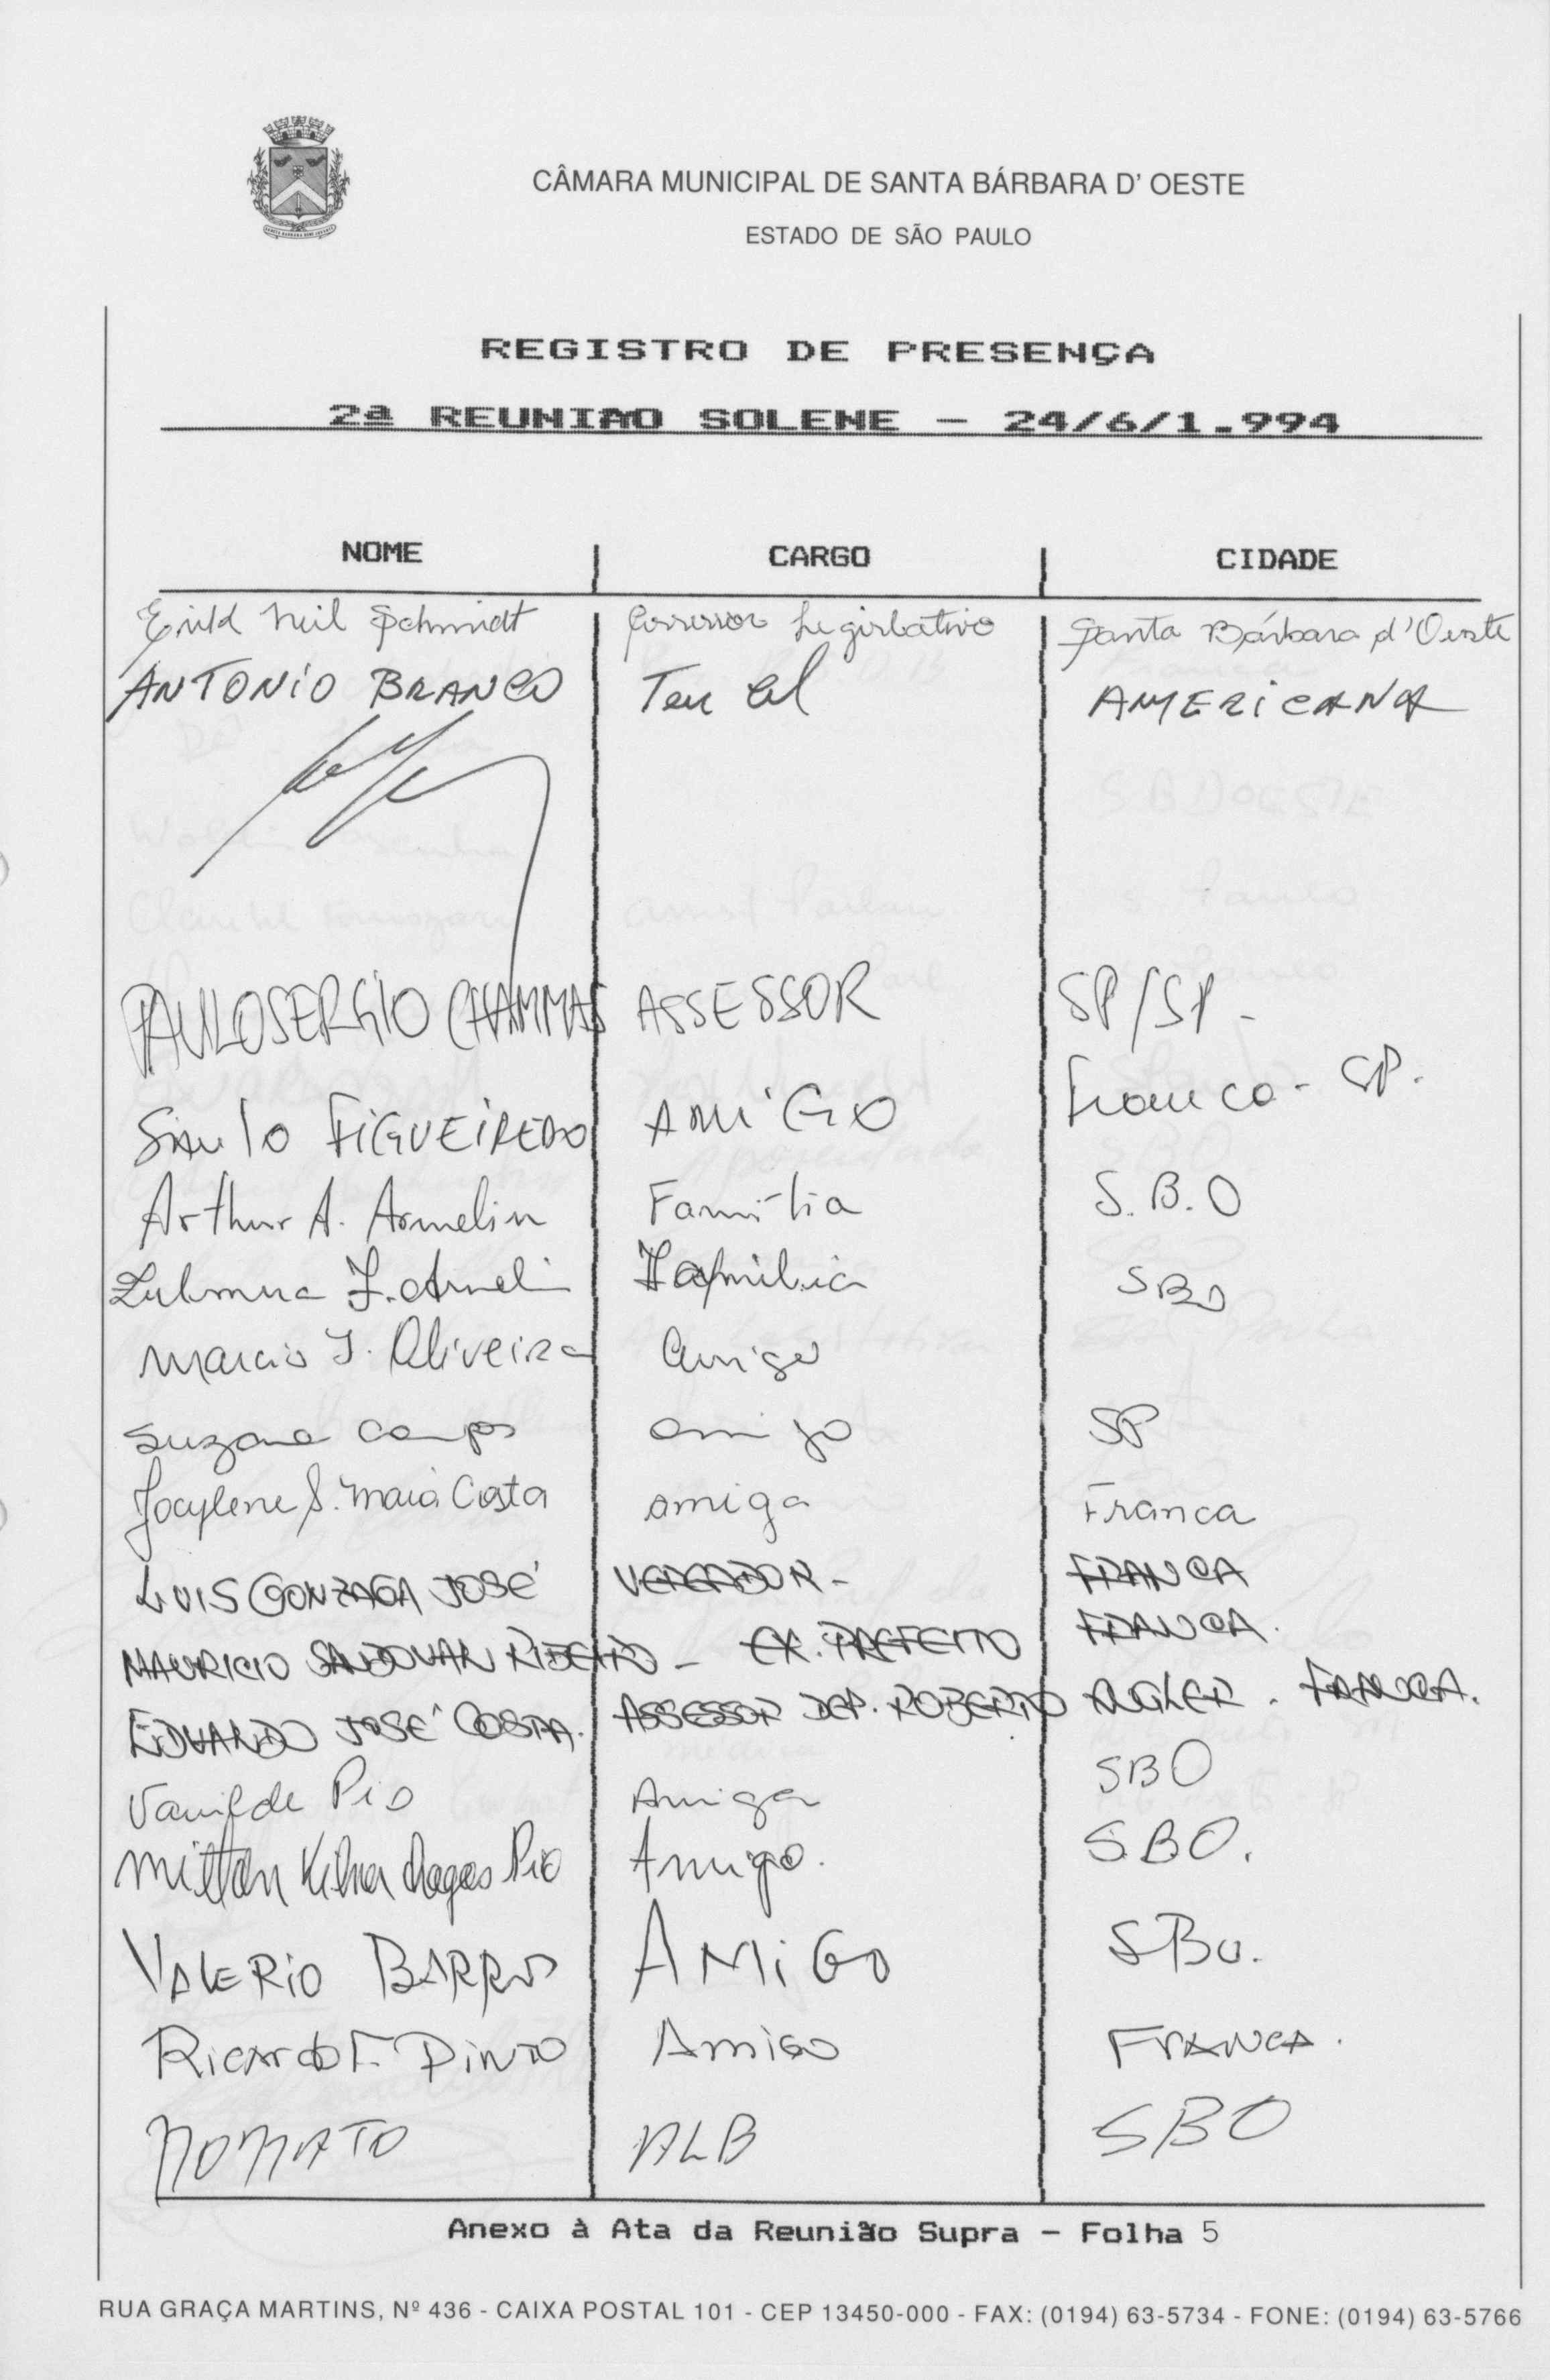 CÂMARA MUNICIPAL DE SANTA BÁRBARA D' OESTE
ESTADO DE SÃO PAULO
REGISTRO DE PRESENÇA
2ª REUNIÃO SOLENE - 24/6/1.994
NOME CARGO CIDADE
Schmidt Assessor Legislativo Santa Bárbara d'Oeste
ANTONIO BRANCO Ten Cel AMERICANA
PAULO SERGIO CHAMMAS ASSESSOR SP/SP -
SAulo FIGUEIREDO AMIGO Franca - SP.
Arthur A. Armelin Família S.B.O
Família SBO
Marcio J. Oliveira Amigo
Suzana Campos amigo SP
Jocylene S. Maia Costa amiga Franca
LUIS GONZAGA JOSÉ VEREADOR - FRANCA
MAURICIO SANDOVAL RIBEIRO - EX. PREFEITO FRANCA.
EDUARDO JOSÉ COSTA. ASSESSOR DEP. ROBERTO ENGLER. FRANCA.
Vanilde Pio Amiga SBO
Milton Chagas Pio Amigo. SBO.
VALERIO BARROS AMIGO SBO.
Ricardo F. Pinto Amigo FRANCA.
ALB SBO
Anexo à Ata da Reunião Supra - Folha 5
RUA GRAÇA MARTINS, Nº 436 - CAIXA POSTAL 101 - CEP 13450-000 - FAX: (0194) 63-5734 - FONE: (0194) 63-5766